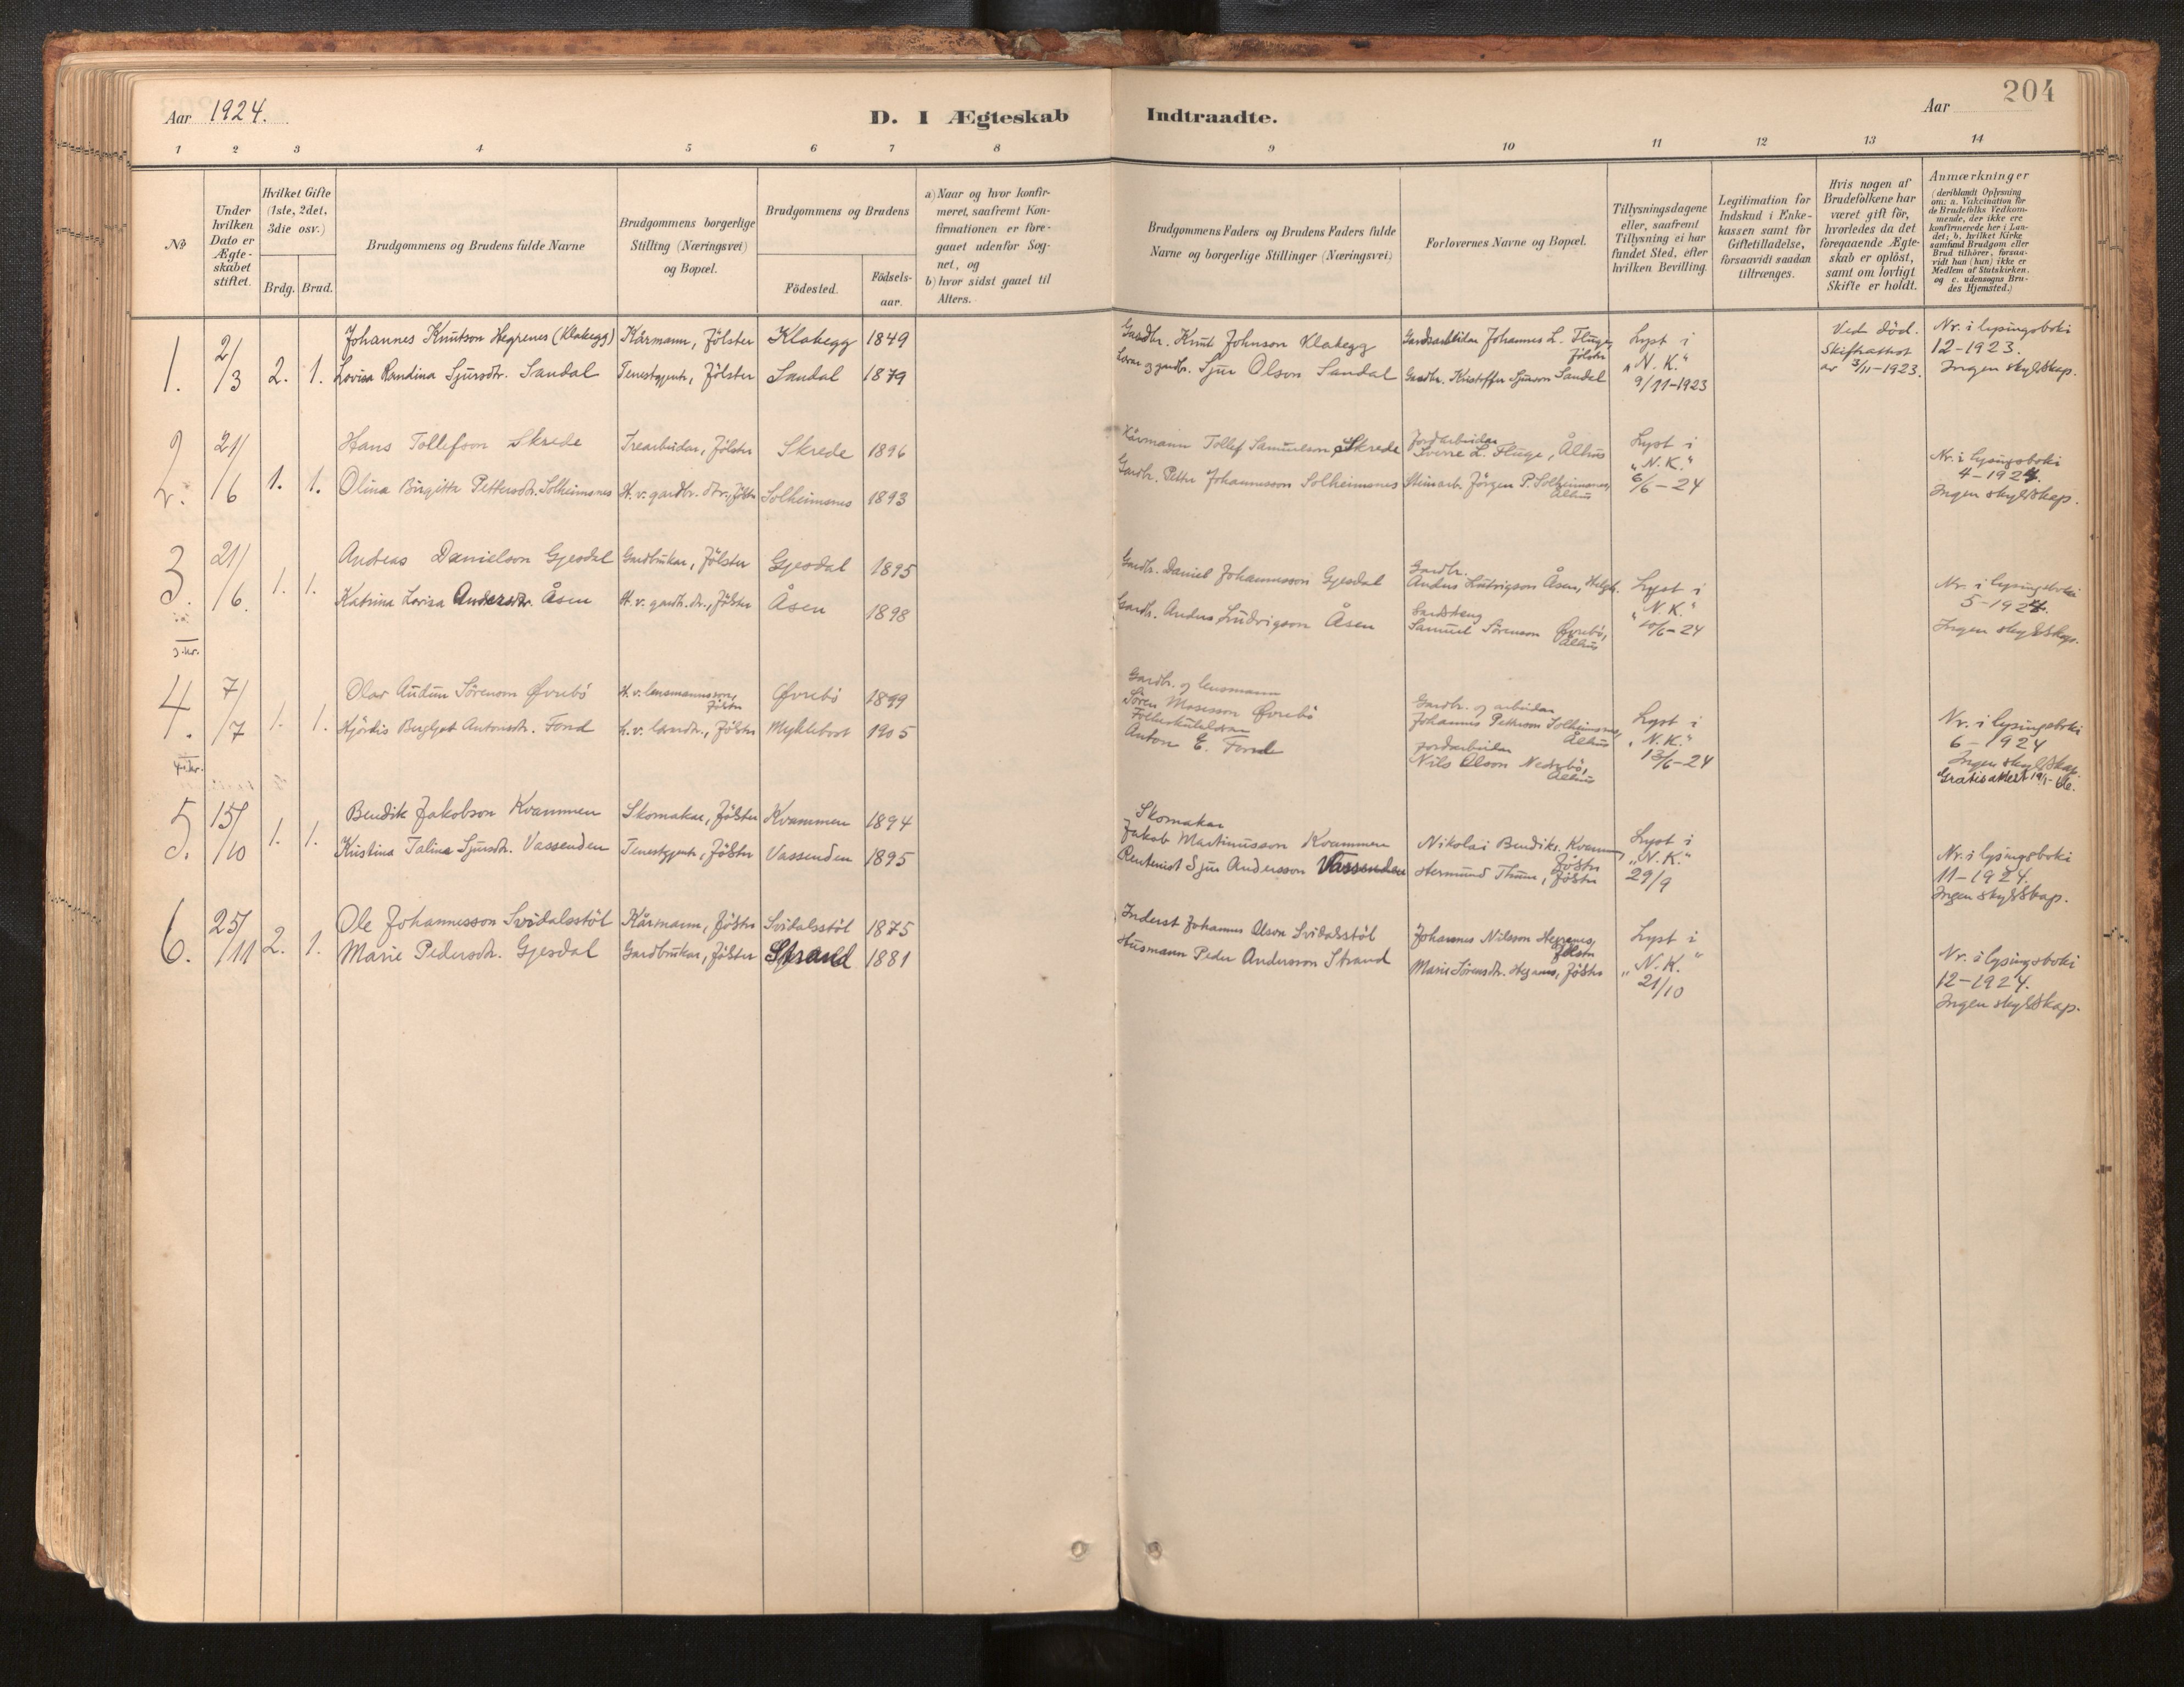 204
Aar 1924.
D. I Ægteskab
Indtraadte.
Aar
1 2 3 4 5 6 7 8 9 10 11 12 13 14
No
Under hvilken Dato er Ægte-skabet stiftet.
Hvilket Gifte (1ste, 2det, 3die osv.)
Brdg. Brud.
Brudgommens og Brudens fulde Navne
Brudgommens borgerlige Stilling (Næringsvei) og Bopæl.
Brudgommens og Brudens
Födested.
Födsels-aar.
a) Naar og hvor konfir-meret, saafremt Kon-firmationen er fore-gaaet udenfor Sog-net, og
b) hvor sidst gaaet til Alters.
Brudgommens Faders og Brudens Faders fulde Navne og borgerlige Stillinger (Næringsvei)
Forlovernes Navne og Bopæl.
Tillysningsdagene eller, saafremt Tillysning ei har fundet Sted, efter hvilken Bevilling.
Legitimation for Indskud i Enke-kassen samt for Giftetilladelse, forsaavidt saadan tiltrænges.
Hvis nogen af Brudefolkene har været gift för, hvorledes da det foregaaende Ægte-skab er oplöst, samt om lovligt Skifte er holdt.
Anmærkninger
(deriblandt Oplysning om: a. Vakcination for de Brudefolks Vedkom-mende, der ikke ere konfirmerede her i Lan-det; b. hvilket Kirke samfund Brudgom eller Brud tilhörer, forsaa-vidt han (hun) ikke er Medlem af Statskirken. og c. udensogns Bru-des Hjemsted.)
1. 2/3 2. 1.
Johannes Knutson Hegrenes (Klakegg) Kårmann, Jölster Klakegg 1849
Lovisa Randina Sjursdtr. Sandal Tenestgjente, Jölster Sandal 1879
Gardbr. Knut Johnson Klakegg
Sjur Olson Sandal
Gardsarbeidar Johannes L. Fluge, Jölster
Gardbr. Kristoffer Sjurson Sandal
Lyst i
„N. K."
9/11-1923
Ved död.
Skifteattest
av 3/11-1923.
Nr. i lysingsboki
12-1923.
Ingen skyldskap.
2. 21/6 1. 1.
Hans Tollefson Skrede Trearbeidar, Jölster Skrede 1896
Olina Birgitte Pettersdtr. Solheimsnes H. v. gardbr. dtr., Jölster Solheimsnes 1893
Kårmann Tollef Samuelson Skrede
Gardbr. Petter Johannesson Solheimsnes
Jordarbeidar
Sverre L. Fluge, Ålhus
Steinarb. Jörgen P. Solheimsnes, Ålhus
Lyst i
„N. K."
6/6-24
Nr. i lysingsboki
4-1924.
Ingen skyldskap.
3. 21/6. 1. 1.
Andreas Danielson Gjesdal Gardbrukar, Jölster Gjesdal 1895
Katrina Lovisa Andersdtr. Åsen H. v. gardb. dtr., Jölster Åsen 1898
Gardbr. Daniel Johannesson Gjesdal
Gardbr. Anders Ludvigson Åsen
Gardbr.
Anders Ludvigson Åsen,
Samuel Sörenson Övrebö, Ålhus
Lyst i
„N. K."
10/6-24
Nr. i lysingsboki
5-1924.
Ingen skyldskap.
3 kr.
4. 7/7 1. 1.
Olav Audun Sörenson Övrebö H. v. lensmannsson, Jölster Övrebö 1899
Hjördis Bergljot Antonsdtr. Fond H. v. lærardtr., Jölster Myklebost 1905
Gardbr. og lensmann
Sören Mosesson Övrebö
Folkeskulelærar
Anton E. Fonde
Gardbr. og arbeidar
Johannes Petterson Solheimsnes, Ålhus
Jordarbeidar
Nils Olson Nedrebö, Ålhus
Lyst i
„N. K."
13/6-24
Nr. i lysingsboki
6-1924
Ingen skyldskap.
Gratis attest
4 kr.
5. 15/10 1. 1.
Bendik Jakobson Kvammen Skomakar, Jölster Kvammen 1894
Kristina Talina Sjursdtr. Vassenden Tenestgjente, Jölster Vassenden 1895
Skomakar
Jakob Martinusson Kvammen
Rentenist Sjur Andersson Vassenden
Nikolai Bendiks. Kvammen, Jölster
Hermund Thune, Jölster
Lyst i
„N. K."
29/9
Nr. i lysingsboki
11-1924.
Ingen skyldskap.
6. 25/11 2. 1.
Ole Johannesson Svidalsstöl Kårmann, Jölster Svidalsstöl 1875
Marie Pedersdtr. Gjesdal Gardbrukar, Jölster Strand 1881
Inderst Johannes Olson Svidalsstöl
Husmann Peder Andersson Strand
Johannes Nilsson Hegrenes, Jölster
Marie Sörensdtr. Hegrenes, Jölster
Lyst i
„N. K."
21/10
Nr. i lysingsboki
12-1924.
Ingen skyldskap.